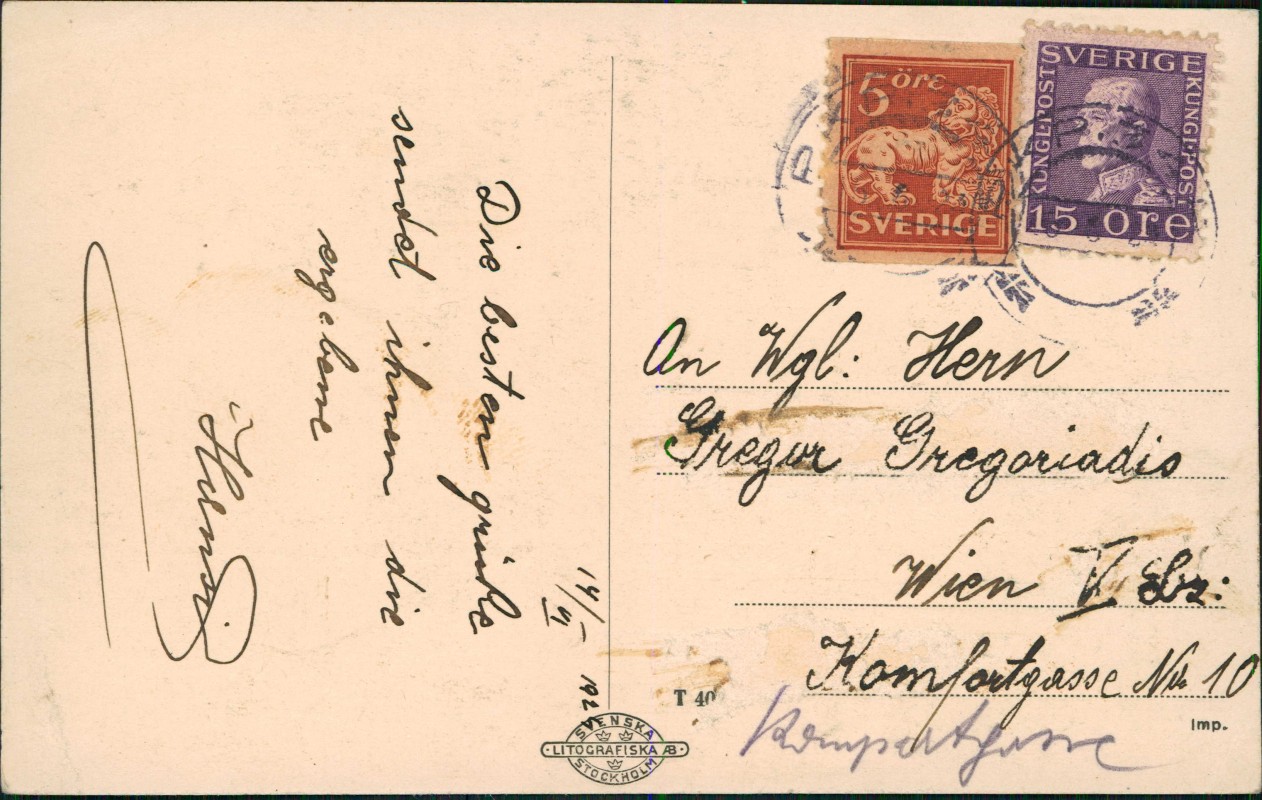 5 öre
SVERIGE
SVERIGE
KUNGL·POST
KUNGL·POST
15 öre
14/VI 192
Die besten grüße
sendet ihnen die
ergebene
An Wgl: Hern
Gregor Gregoriadis
Wien V Bez:
Komfortgasse Nr 10
Kompertgasse
T 40
Imp.
SVENSKA
LITOGRAFISKA AB
STOCKHOLM